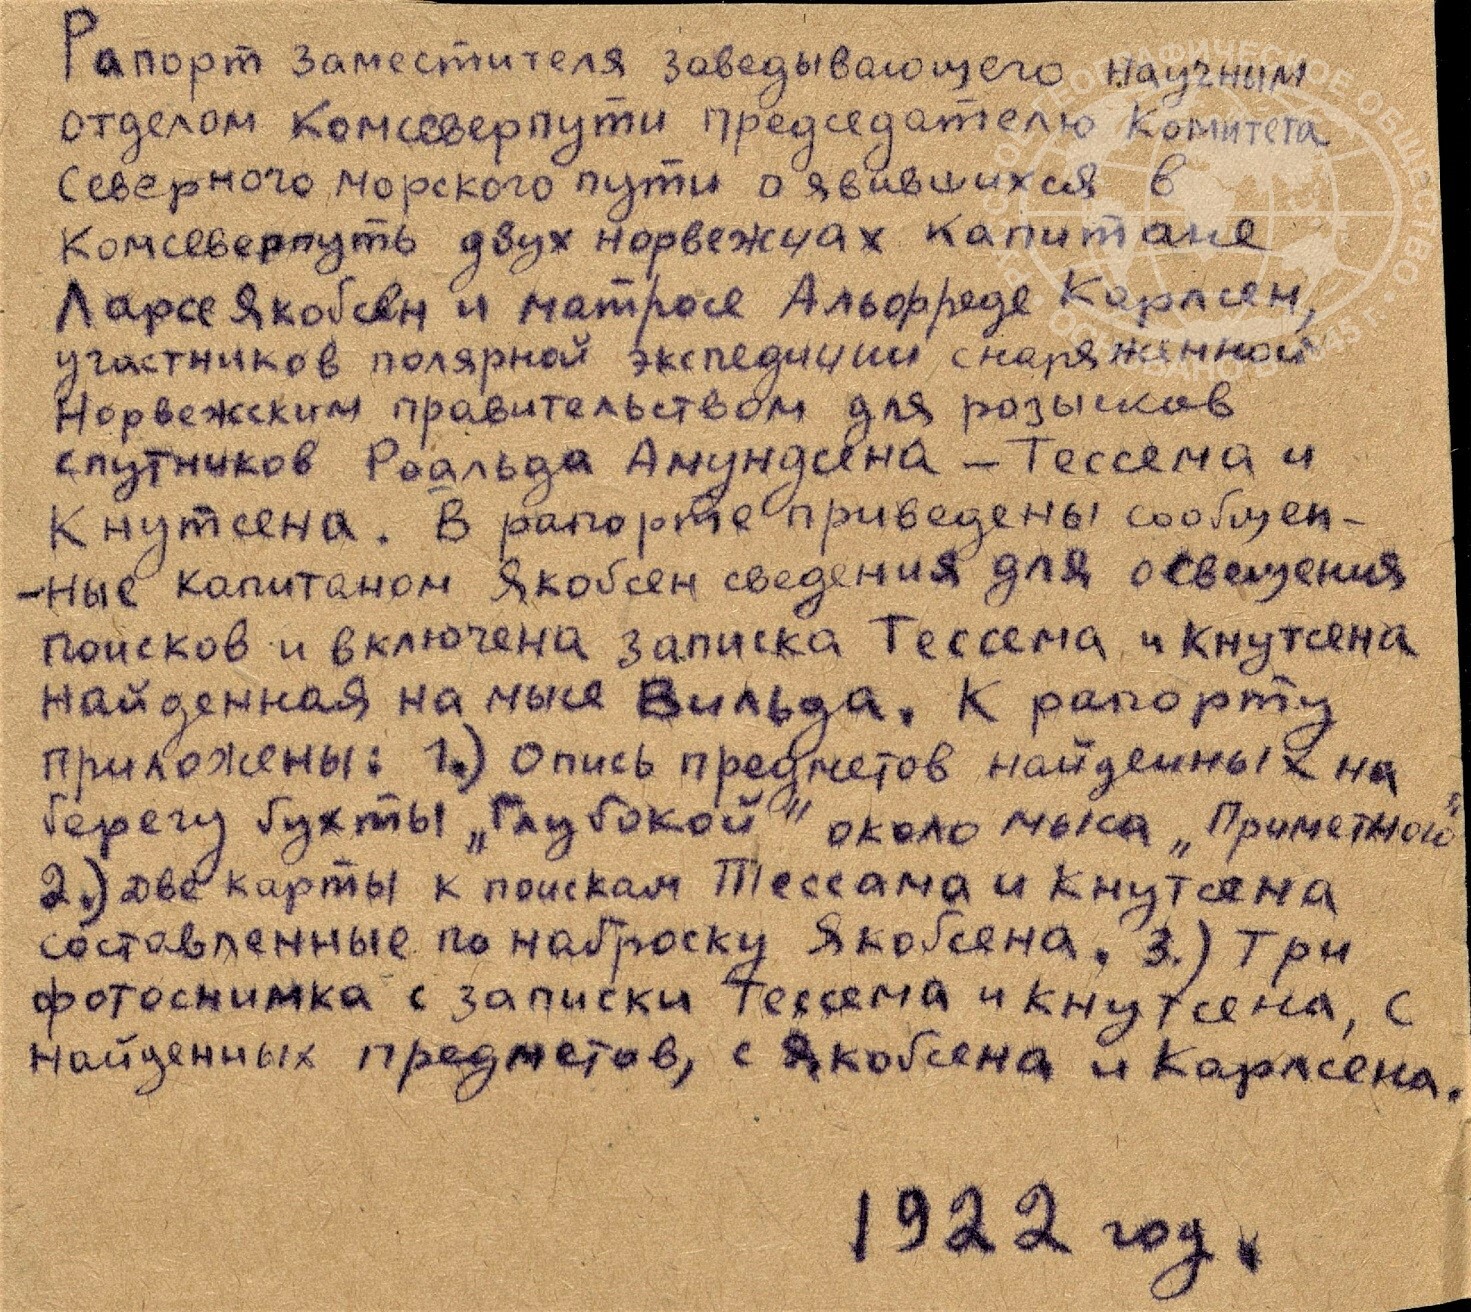 Рапорт заместителя заведывающего научным
отделом Комсеверпути председателю Комитета
Северного морского пути о явившихся в
Комсеверпуть двух норвежцах капитане
Ларсе Якобсен и матросе Альфреде Карлсен,
участников полярной экспедиции снаряженной
Норвежским правительством для розысков
спутников Роальда Амундсена – Тессема и
Кнутсена. В рапорте приведены сообщен-
-ные капитаном Якобсен сведения для освещения
поисков и включена записка Тессема и Кнутсена
найденная на мысе Вильда. К рапорту
приложены: 1.) Опись предметов найденных на
берегу бухты „Глубокой" около мыса „Приметного"
2.) Две карты к поискам Тессама и Кнутсена
составленные по наброску Якобсена. 3.) Три
фотоснимка с записки Тессема и Кнутсена, с
найденных предметов, с Якобсена и Карлсена.
1922 год.
РУССКОЕ ГЕОГРАФИЧЕСКОЕ ОБЩЕСТВО
ОСНОВАНО В 1845 г.